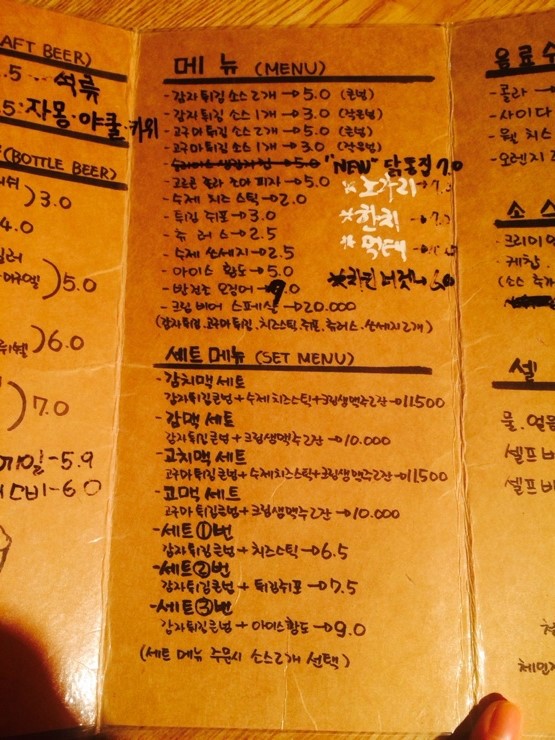 RAFT BEER)
.5 - 석류
.5 자몽·야쿨·키위
(BOTTLE BEER)
)3.0
4.0
)5.0
)6.0
)7.0
-5.9
-6.0
메뉴 (MENU)
- 감자튀김 소스2개 → 5.0 (큰컵)
- 감자튀김 소스1개 → 3.0 (작은컵)
- 고구마튀김 소스2개 → 5.0 (큰컵)
- 고구마튀김 소스1개 → 3.0 (작은컵)
"NEW" 닭똥집 7.0
- 고르곤 졸라 꼬마 피자 → 5.0
* 노가리 → 7.
- 수제 치즈 스틱 → 2.0
- 튀김 쥐포 → 3.0
* 한치 → 7.
- 츄러스 → 2.5
- 수제 쏘세지 → 2.5
* 먹태
- 아이스 황도 → 5.0
- 반건조 오징어 → 9.0
* 치킨 너겟 → 6.0
- 크림 비어 스페샬 → 20.000
(감자튀김. 고구마튀김. 치즈스틱. 쥐포. 츄러스. 쏘세지 2개)
세트 메뉴 (SET MENU)
- 감치맥 세트
감자튀김큰컵 + 수제치즈스틱 + 크림생맥주2잔 → 11500
- 감맥 세트
감자튀김큰컵 + 크림생맥주2잔 → 10.000
- 고치맥 세트
고구마튀김큰컵 + 수제치즈스틱 + 크림생맥주2잔 → 11500
- 고맥 세트
고구마튀김큰컵 + 크림생맥주2잔 → 10.000
- 세트①번
감자튀김큰컵 + 치즈스틱 → 6.5
- 세트②번
감자튀김큰컵 + 튀김쥐포 → 7.5
- 세트③번
감자튀김큰컵 + 아이스황도 → 9.0
(세트 메뉴 주문시 소스2개 선택)
음료
- 콜라
- 사이다
- 웰치스
- 오렌지
소스
- 케찹
(소스
셀
물. 얼음
셀프
셀프